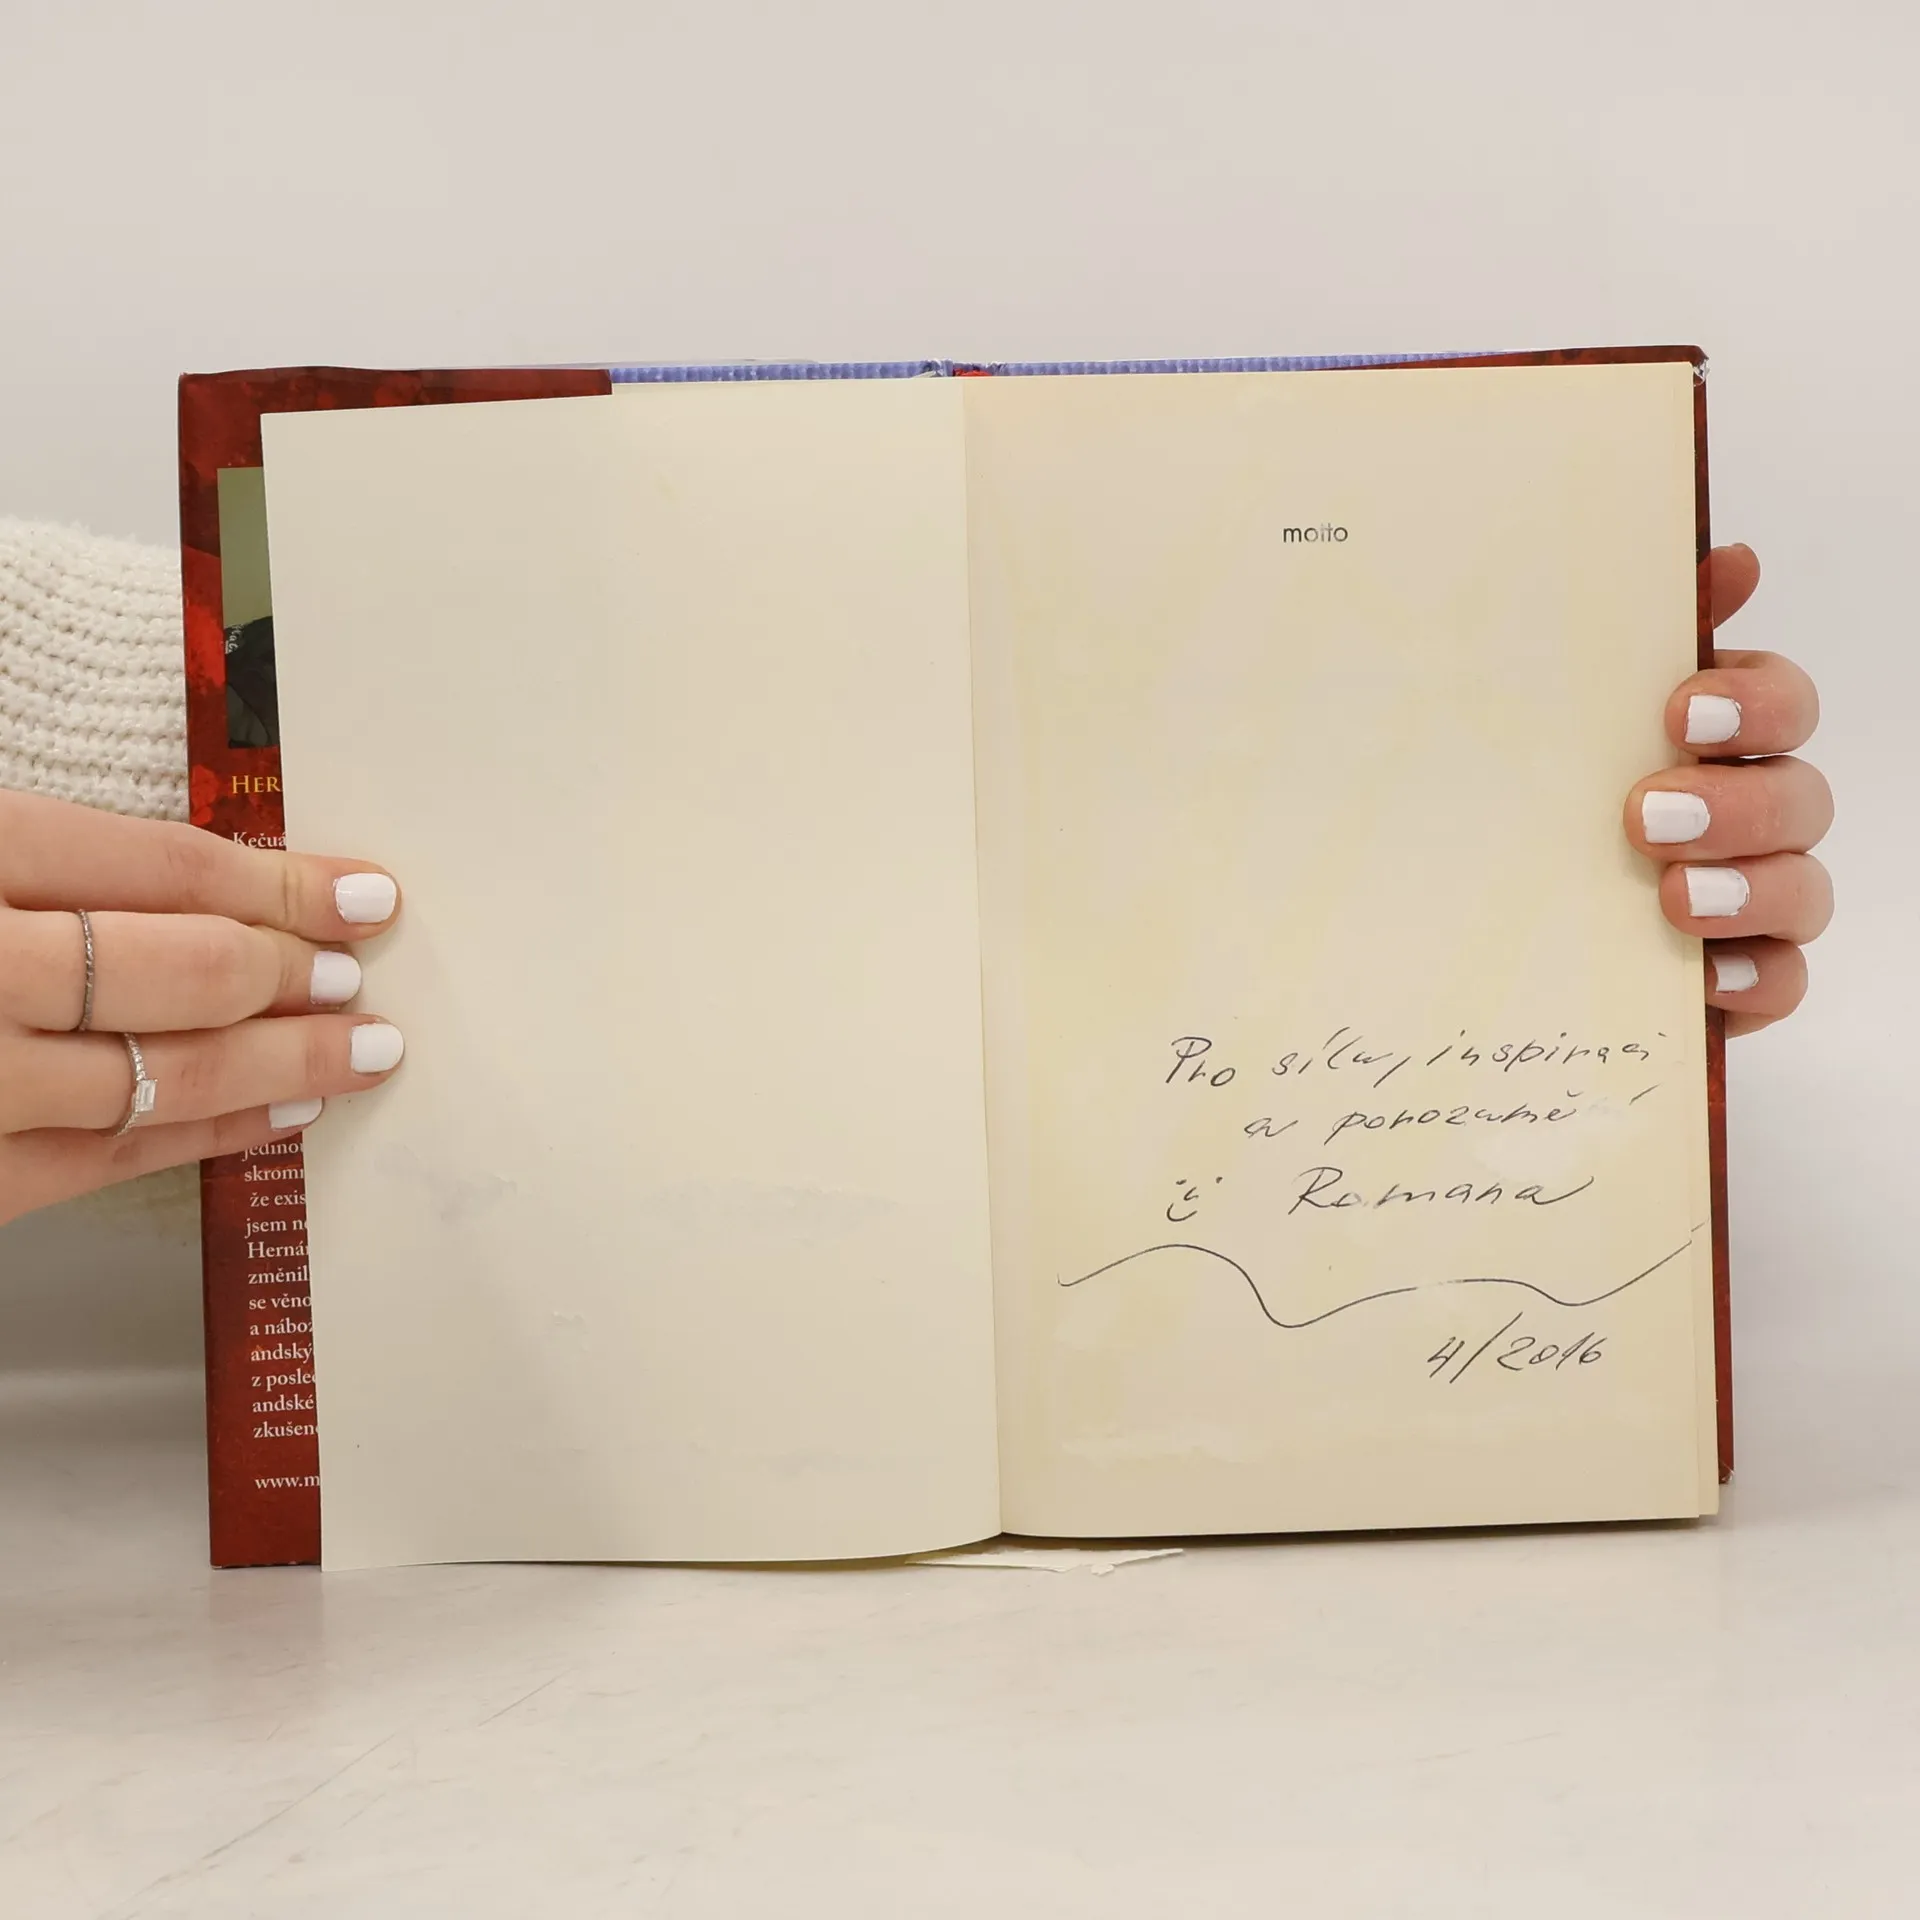 HER
Kečuá
jedino
skrom
že exis
jsem n
Herná
změnil
se věno
a nábož
andský
z posle
andské
zkušen
www.m
motto
Pro sílu, inspiraci
a porozumě
Romana
4/2016